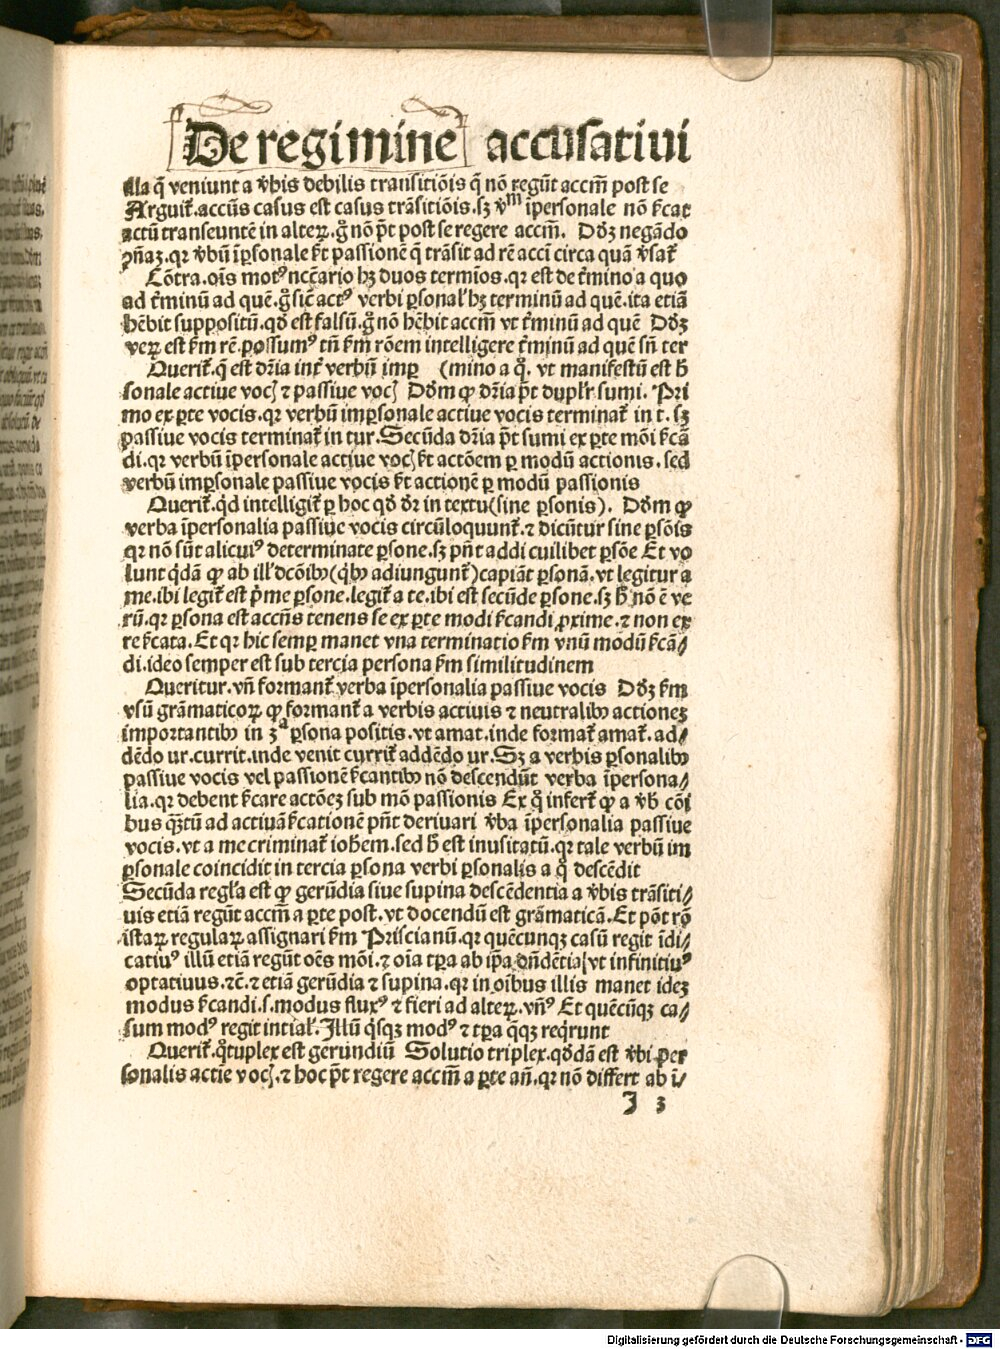 De regimine accusatiui
lla q̄ veniunt a v̄bis debilis transitiōis q̄ nō regūt accm̄ post se
Arguit᷑.accūs casus est casus trāsitiōis.sꝫ v̄ᵐ īpersonale nō s̄icat
actū transeuntē in alteꝝ.gͦ nō pōt post se regere accm̄. Dōꝫ negādo
ꝯn̄aꝫ.qꝛ v̄bū īꝑsonale s̄ict passionē q̄ trāsit ad rē acci circa quā v̄sat᷑
Cōtra.oīs motꝰ nccārio hꝫ duos termīos.qꝛ est de t̄mino a quo
ad t̄minū ad quē.gͦ sic̄ actꝰ verbi ꝑsonal' hꝫ terminū ad quē.ita etiā
hēbit suppositū.qđ est falsū.gͦ nō hēbit accm̄ vt t̄minū ad quē Dōꝫ
veꝝ est s̄m rē.possumꝰ tn̄ s̄m rōem intelligere t̄minū ad quē sn̄ ter
Querit᷑.q̄ est dr̄ia int̄ verbū imꝑ (mino a qͦ. vt manifestū est ħ
sonale actiue vocꝭ ⁊ passiue vocꝭ Dōm ꝙ dr̄ia pōt dupl'r sumi. Pri
mo ex ꝑte vocis.qꝛ verbū imꝑsonale actiue vocis terminat᷑ in t.sꝫ
passiue vocis terminat᷑ in tur.Secūda dr̄ia pōt sumi ex ꝑte mōi s̄icā
di.qꝛ verbū īpersonale actiue vocꝭ s̄ict actōem ꝑ modū actionis.sed
verbū imꝑsonale passiue vocis s̄ict actionē ꝑ modū passionis
Querit᷑.qͥd intelligit᷑ ꝑ hoc qđ dr̄ in textu(sine ꝑsonis). Dōm ꝙ
verba īpersonalia passiue vocis circūloquunt᷑.⁊ dicūtur sine ꝑsōis
qꝛ nō sūt alicuiꝰ determinate ꝑsone.sꝫ pn̄t addi cuilibet ꝑsōe Et vo
lunt qͥdā ꝙ ab ill' dcōibꝰ(qͥbꝰ adiungunt᷑)capiāt ꝑsonā.vt legitur a
me.ibi legit᷑ est p̄me ꝑsone.legit᷑ a te.ibi est secūde ꝑsone.sꝫ ħ nō ē ve
rū.qꝛ ꝑsona est accn̄s tenens se ex ꝑte modi s̄icandi ꝓxime.⁊ non ex
re s̄icata.Et qꝛ hic semꝑ manet vna terminatio s̄m vnū modū s̄icā⸗
di.ideo semper est sub tercia persona s̄m similitudinem
Queritur.vn̄ formant᷑ verba īpersonalia passiue vocis Dōꝫ s̄m
vsū grāmaticoꝝ ꝙ formant᷑ a verbis actiuis ⁊ neutralibꝰ actioneꝫ
importantibꝰ in 3ᵃ ꝑsona positis.vt amat.inde format᷑ amat᷑.ad⸗
dēdo ur.currit.inde venit currit᷑ addēdo ur.Sꝫ a verbis ꝑsonalibꝰ
passiue vocis vel passionē s̄icantibꝰ nō descendūt verba īpersona⸗
lia.qꝛ debent s̄icare actōeꝫ sub mō passionis Ex qͦ infert᷑ ꝙ a v̄b' cōi
bus qꝫtū ad actiuā s̄icationē pn̄t deriuari v̄ba īpersonalia passiue
vocis.vt a me criminat᷑ iohem̄.sed ħ est inusitatū.qꝛ tale verbū im
ꝑsonale coincidit in tercia ꝑsona verbi ꝑsonalis a qͦ descēdit
Secūda regl'a est ꝙ gerūdia siue supina descēdentia a v̄bis trāsiti⸗
uis etiā regūt accm̄ a ꝑte post.vt docendū est grāmaticā.Et pōt rō
istaꝝ regulaꝝ assignari s̄m Prisciānū.qꝛ quēcunqꝫ casū regit īdi⸗
catiuꝰ illū etiā regūt oēs mōi.⁊ oīa tꝑa ab ip̄a dn̄dētia/vt infinitiuꝰ
optatiuus.⁊c̄.⁊ etiā gerūdia ⁊ supina.qꝛ in oibus illis manet ideꝫ
modus s̄icandi.s.modus fluxꝰ ⁊ fieri ad alteꝝ.vn̄ꝰ Et quēcūqꝫ ca⸗
sum modꝰ regit intial'.Illū qͥsqꝫ modꝰ ⁊ tꝑa q̄qꝫ reqͥrunt
Querit᷑.qͦtuplex est gerundiū Solutio triplex.qđdā est v̄bi per
sonalis actīe vocꝭ.⁊ hoc pōt regere accm̄ a ꝑte an̄.qꝛ nō differt ab ī⸗
I 3
Digitalisierung gefördert durch die Deutsche Forschungsgemeinschaft - DFG